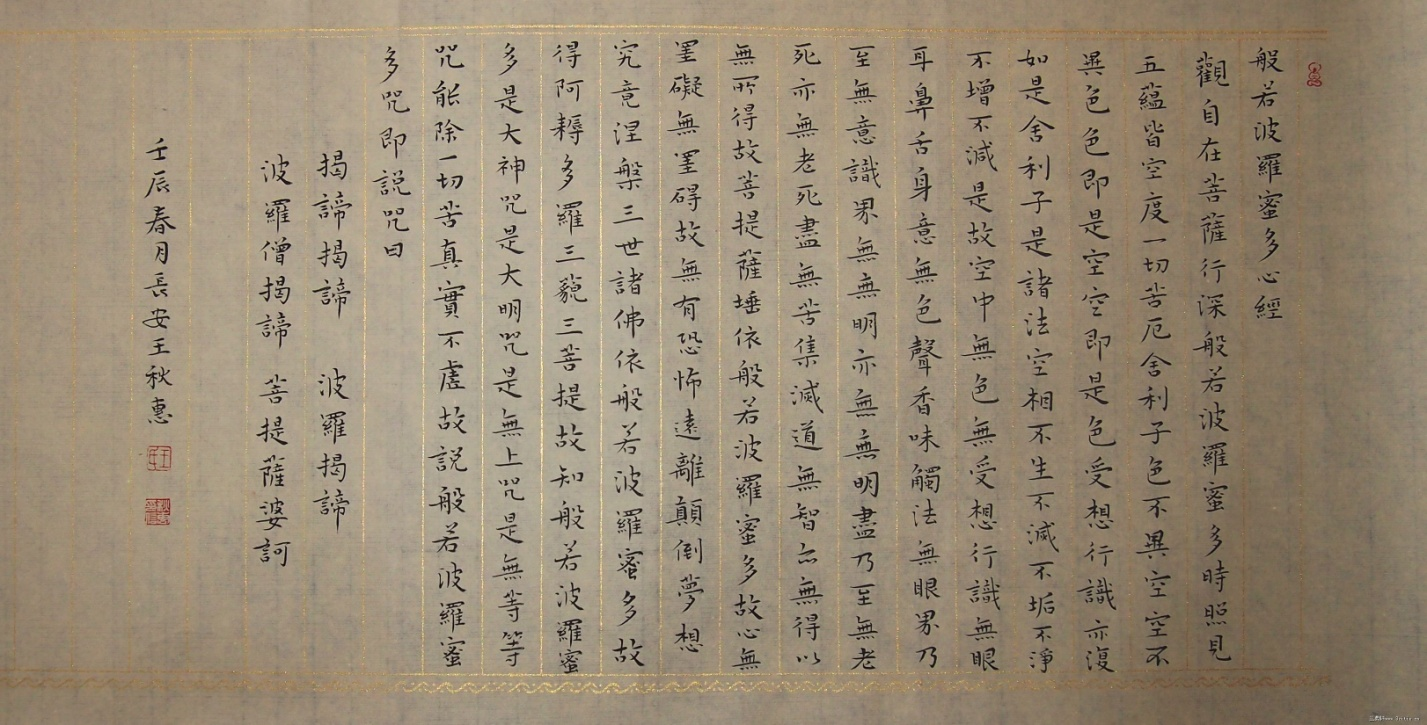 般若波羅蜜多心經
觀自在菩薩行深般若波羅蜜多時照見
五蘊皆空度一切苦厄舍利子色不異空空不
異色色即是空空即是色受想行識亦復
如是舍利子是諸法空相不生不滅不垢不淨
不增不減是故空中無色無受想行識無眼
耳鼻舌身意無色聲香味觸法無眼界乃
至無意識界無無明亦無無明盡乃至無老
死亦無老死盡無苦集滅道無智亦無得以
無所得故菩提薩埵依般若波羅蜜多故心無
罣礙無罣碍故無有恐怖遠離顛倒夢想
究竟涅槃三世諸佛依般若波羅蜜多故
得阿耨多羅三藐三菩提故知般若波羅蜜
多是大神咒是大明咒是無上咒是無等等
咒能除一切苦真實不虛故說般若波羅蜜
多咒即說咒曰
揭諦揭諦 波羅揭諦
波羅僧揭諦 菩提薩婆訶
壬辰春月長安王秋惠